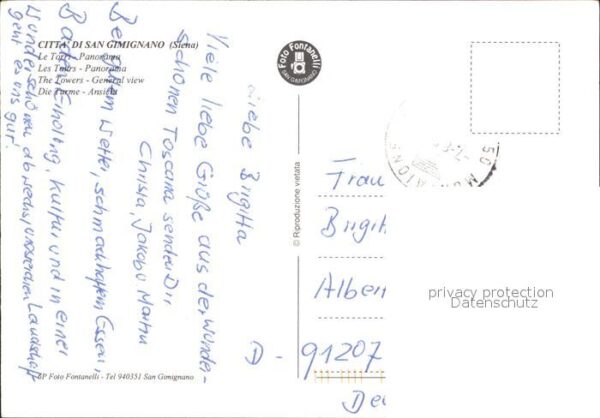 CITTA' DI SAN GIMIGNANO (Siena)
Le Torri - Panorama
Les Tours - Panorama
The Towers - General view
Die Türme - Ansicht
Foto Fontanelli
SAN GIMIGNANO
© Riproduzione vietata
Liebe Brigitta
Viele liebe Grüße aus der wunder-
schönen Toscana senden Dir
Christa, Jakob u Martin
Bei dem Wetter, schmackhaftem Essen,
Baden, Erholung, Kultur und in einer
wunderschönen abwechslungsreichen Landschaft
geht es uns gut!
Frau
Brigit
Alber
D - 91207
De
privacy protection
Datenschutz
GP Foto Fontanelli - Tel 940351 San Gimignano